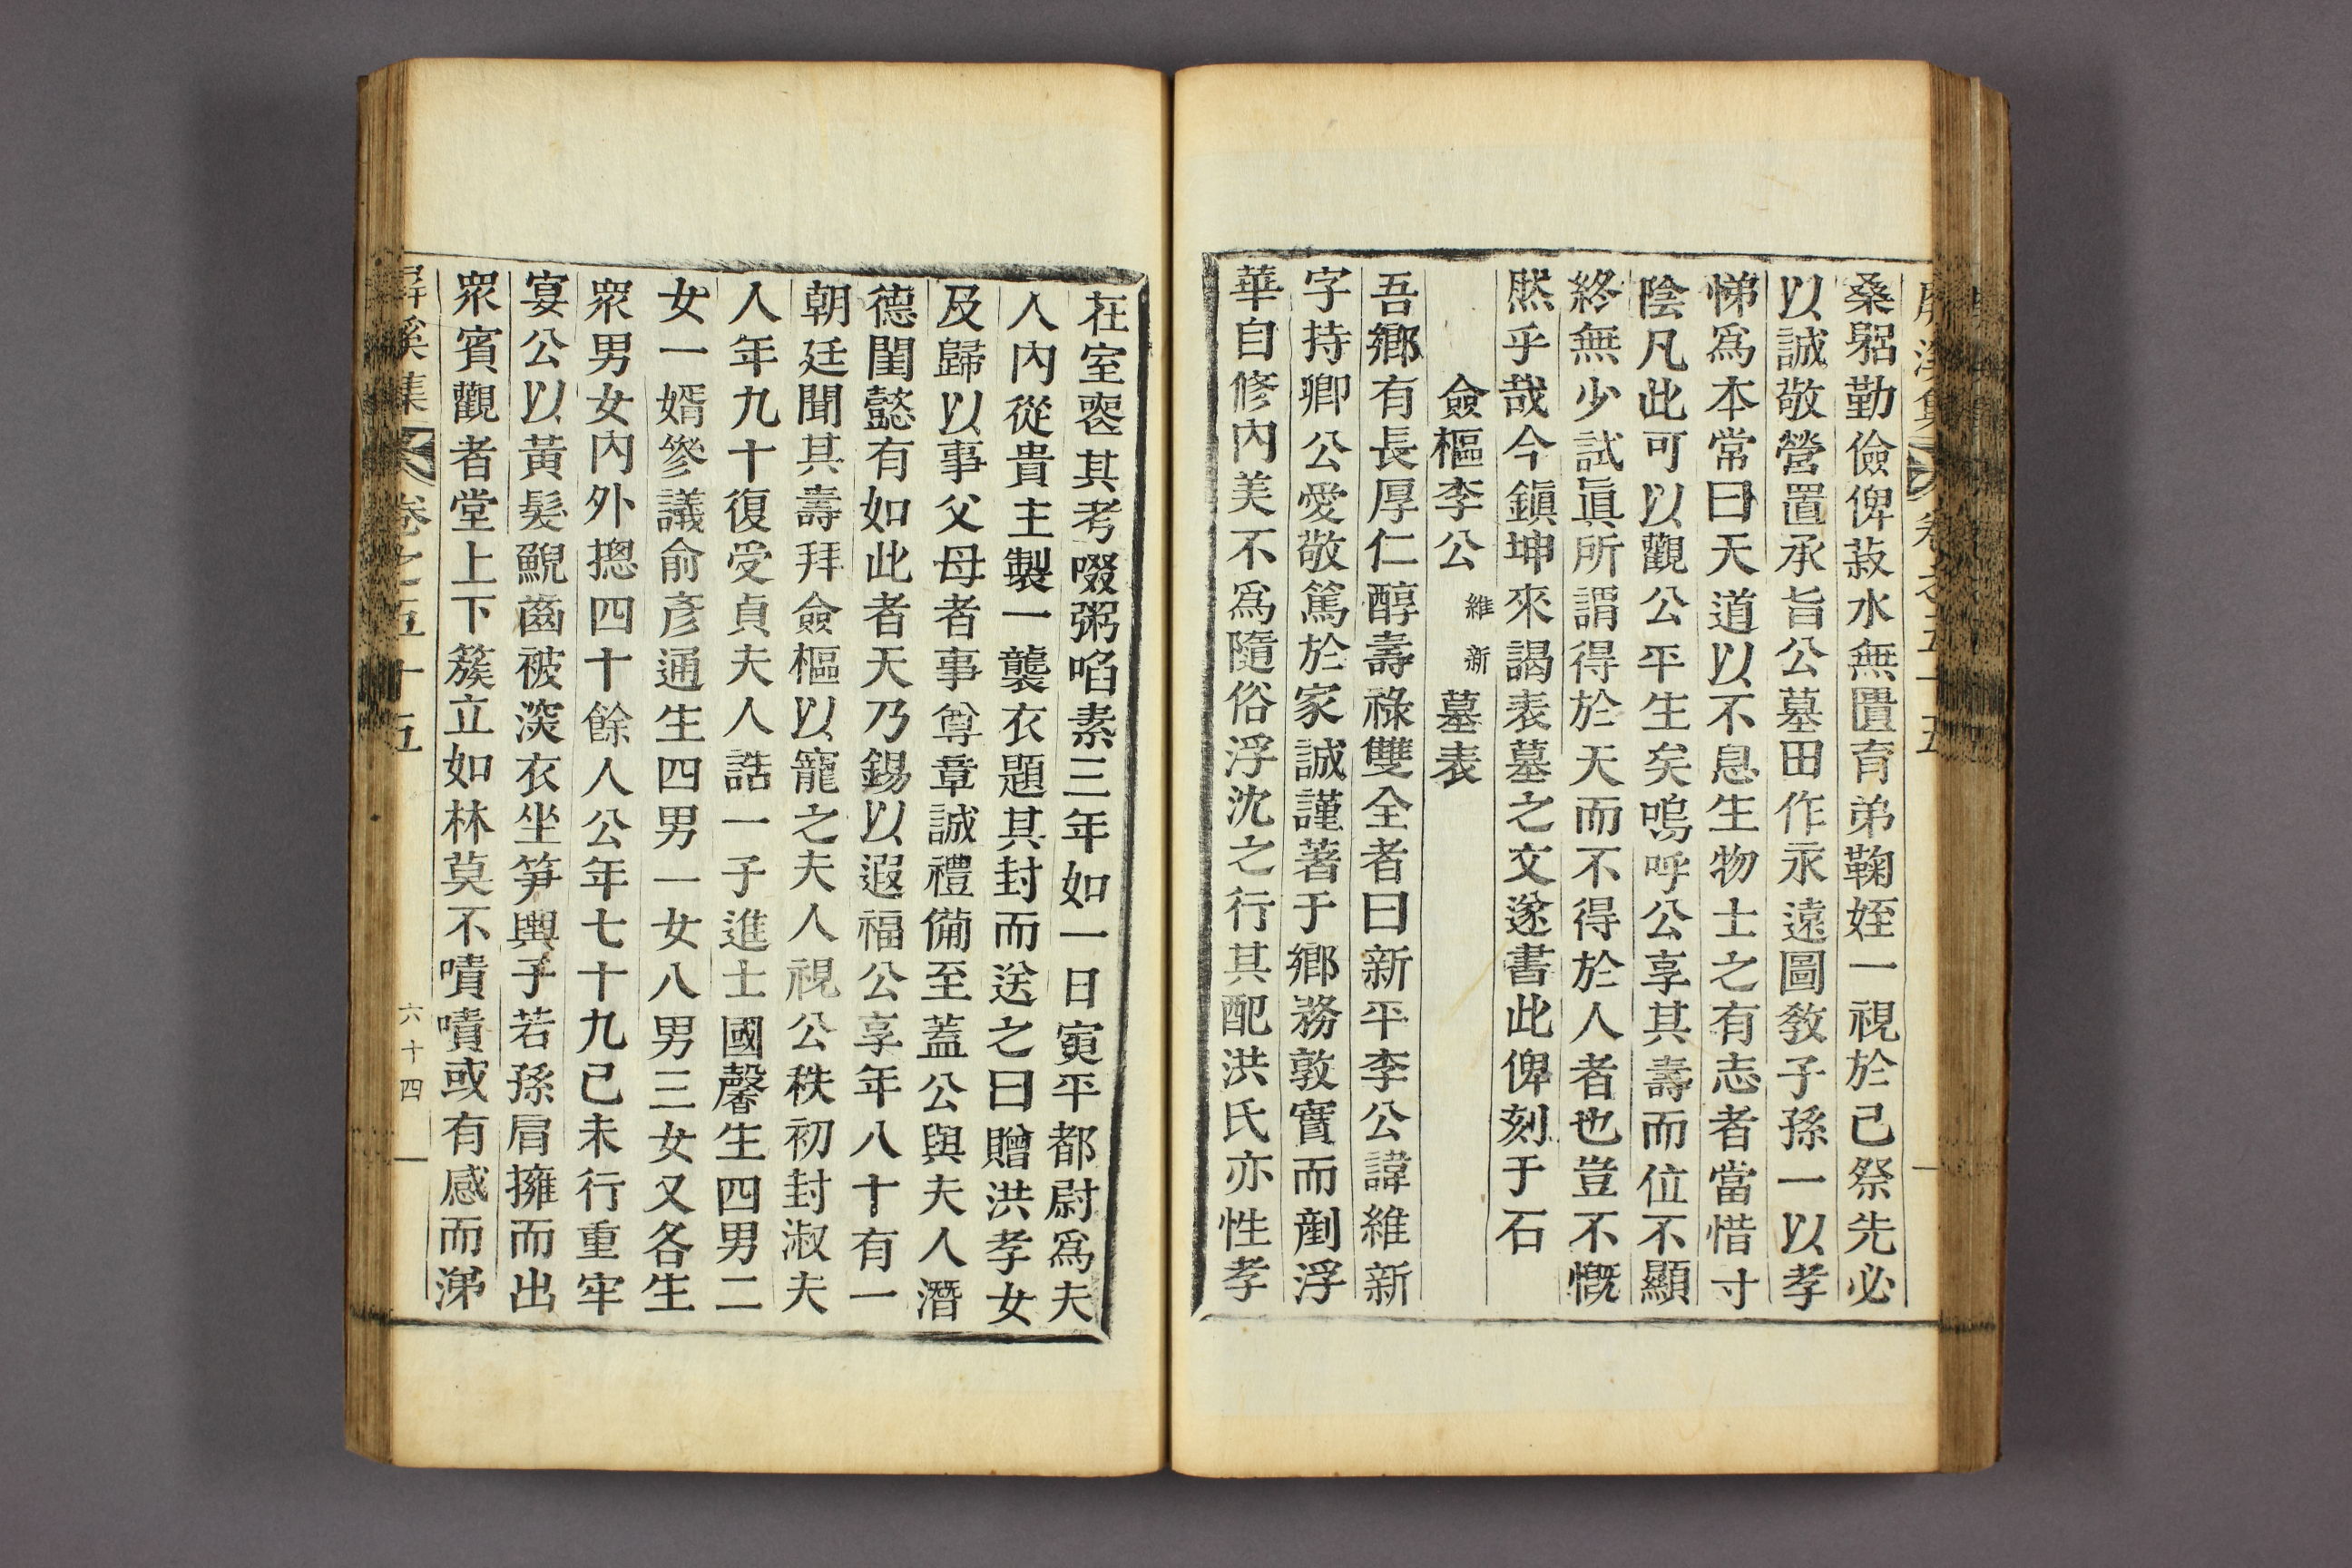 屛溪集 卷之五十五
桑躬勤儉俾菽水無匱育弟鞠姪一視於己祭先必
以誠敬營置承旨公墓田作永遠圖敎子孫一以孝
悌爲本常曰天道以不息生物士之有志者當惜寸
陰凡此可以觀公平生矣嗚呼公享其壽而位不顯
終無少試眞所謂得於天而不得於人者也豈不慨
然乎哉今鎭坤來謁表墓之文遂書此俾刻于石
僉樞李公維新墓表
吾鄕有長厚仁醇壽祿雙全者曰新平李公諱維新
字持卿公愛敬篤於家誠謹著于鄕務敦實而剷浮
華自修內美不爲隨俗浮沈之行其配洪氏亦性孝
在室喪其考啜粥啗素三年如一日寅平都尉爲夫
人內從貴主製一襲衣題其封而送之曰贈洪孝女
及歸以事父母者事尊章誠禮備至蓋公與夫人潛
德閨懿有如此者天乃錫以遐福公享年八十有一
朝廷聞其壽拜僉樞以寵之夫人視公秩初封淑夫
人年九十復受貞夫人誥一子進士國馨生四男二
女一婿參議俞彥通生四男一女八男三女又各生
衆男女內外摠四十餘人公年七十九己未行重牢
宴公以黃髮鯢齒被深衣坐笋輿子若孫肩擁而出
衆賓觀者堂上下簇立如林莫不嘖嘖或有感而涕
屛溪集 卷之五十五 六十四